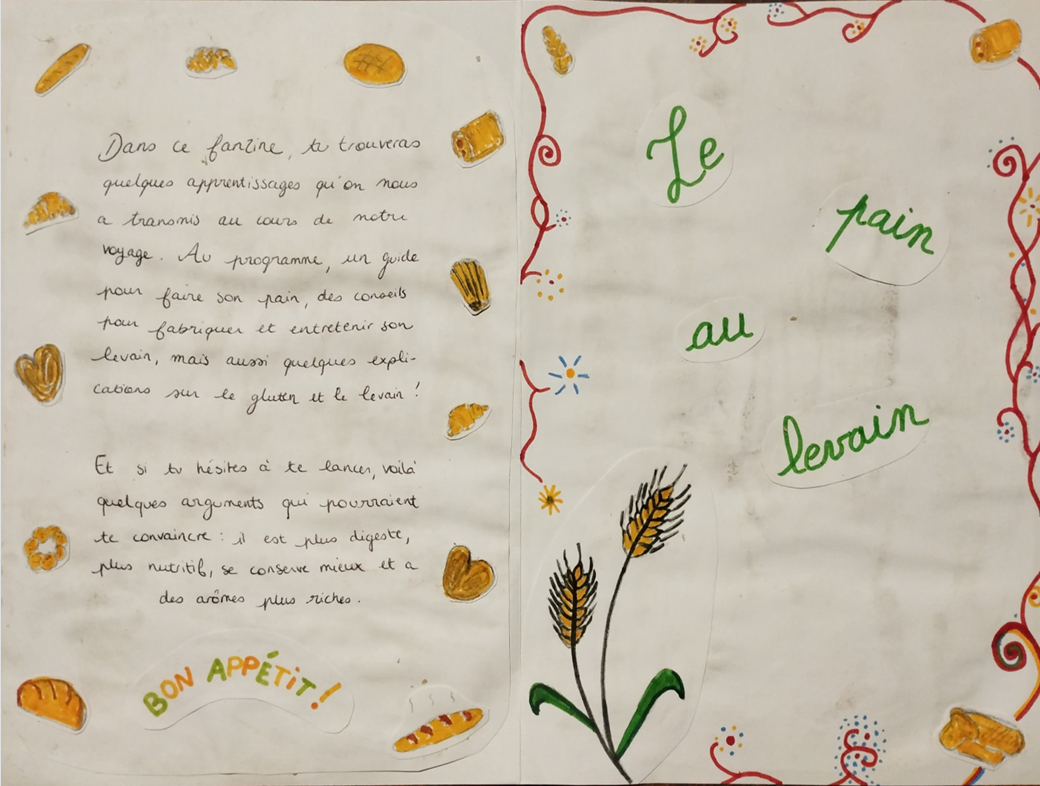 Dans ce fanzine, tu trouveras
quelques apprentissages qu'on nous
a transmis au cours de notre
voyage. Au programme, un guide
pour faire son pain, des conseils
pour fabriquer et entretenir son
levain, mais aussi quelques expli-
cations sur le gluten et le levain !
Et si tu hésites à te lancer, voilà
quelques arguments qui pourraient
te convaincre : il est plus digeste,
plus nutritif, se conserve mieux et a
des arômes plus riches.
BON APPÉTIT !
Le
pain
au
levain